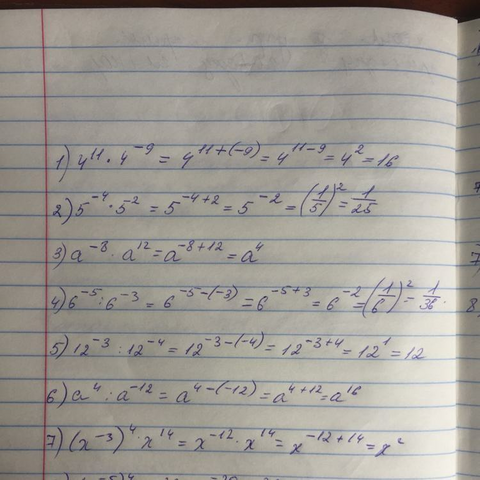 1) 4^11 · 4^-9 = 4^11+(-9) = 4^11-9 = 4^2 = 16
2) 5^-4 · 5^2 = 5^-4+2 = 5^-2 = (1/5)^2 = 1/25
3) a^-8 · a^12 = a^-8+12 = a^4
4) 6^-5 : 6^-3 = 6^-5-(-3) = 6^-5+3 = 6^-2 = (1/6)^2 = 1/36.
5) 12^-3 : 12^-4 = 12^-3-(-4) = 12^-3+4 = 12^1 = 12
6) a^4 : a^-12 = a^4-(-12) = a^4+12 = a^16
7) (x^-3)^4 · x^14 = x^-12 · x^14 = x^-12+14 = x^2